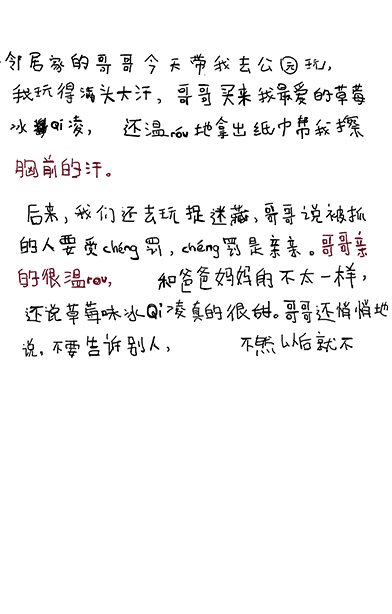 邻居家的哥哥今天带我去公园玩，
我玩得满头大汗，哥哥买来我最爱的草莓
冰Qi凌，还温róu地拿出纸巾帮我擦
胸前的汗。
后来，我们还去玩捉迷藏，哥哥说被抓
的人要受chéng罚，chéng罚是亲亲。哥哥亲
的很温rou，和爸爸妈妈的不太一样，
还说草莓味冰Qi凌真的很甜。哥哥还悄悄地
说，不要告诉别人，不然以后就不